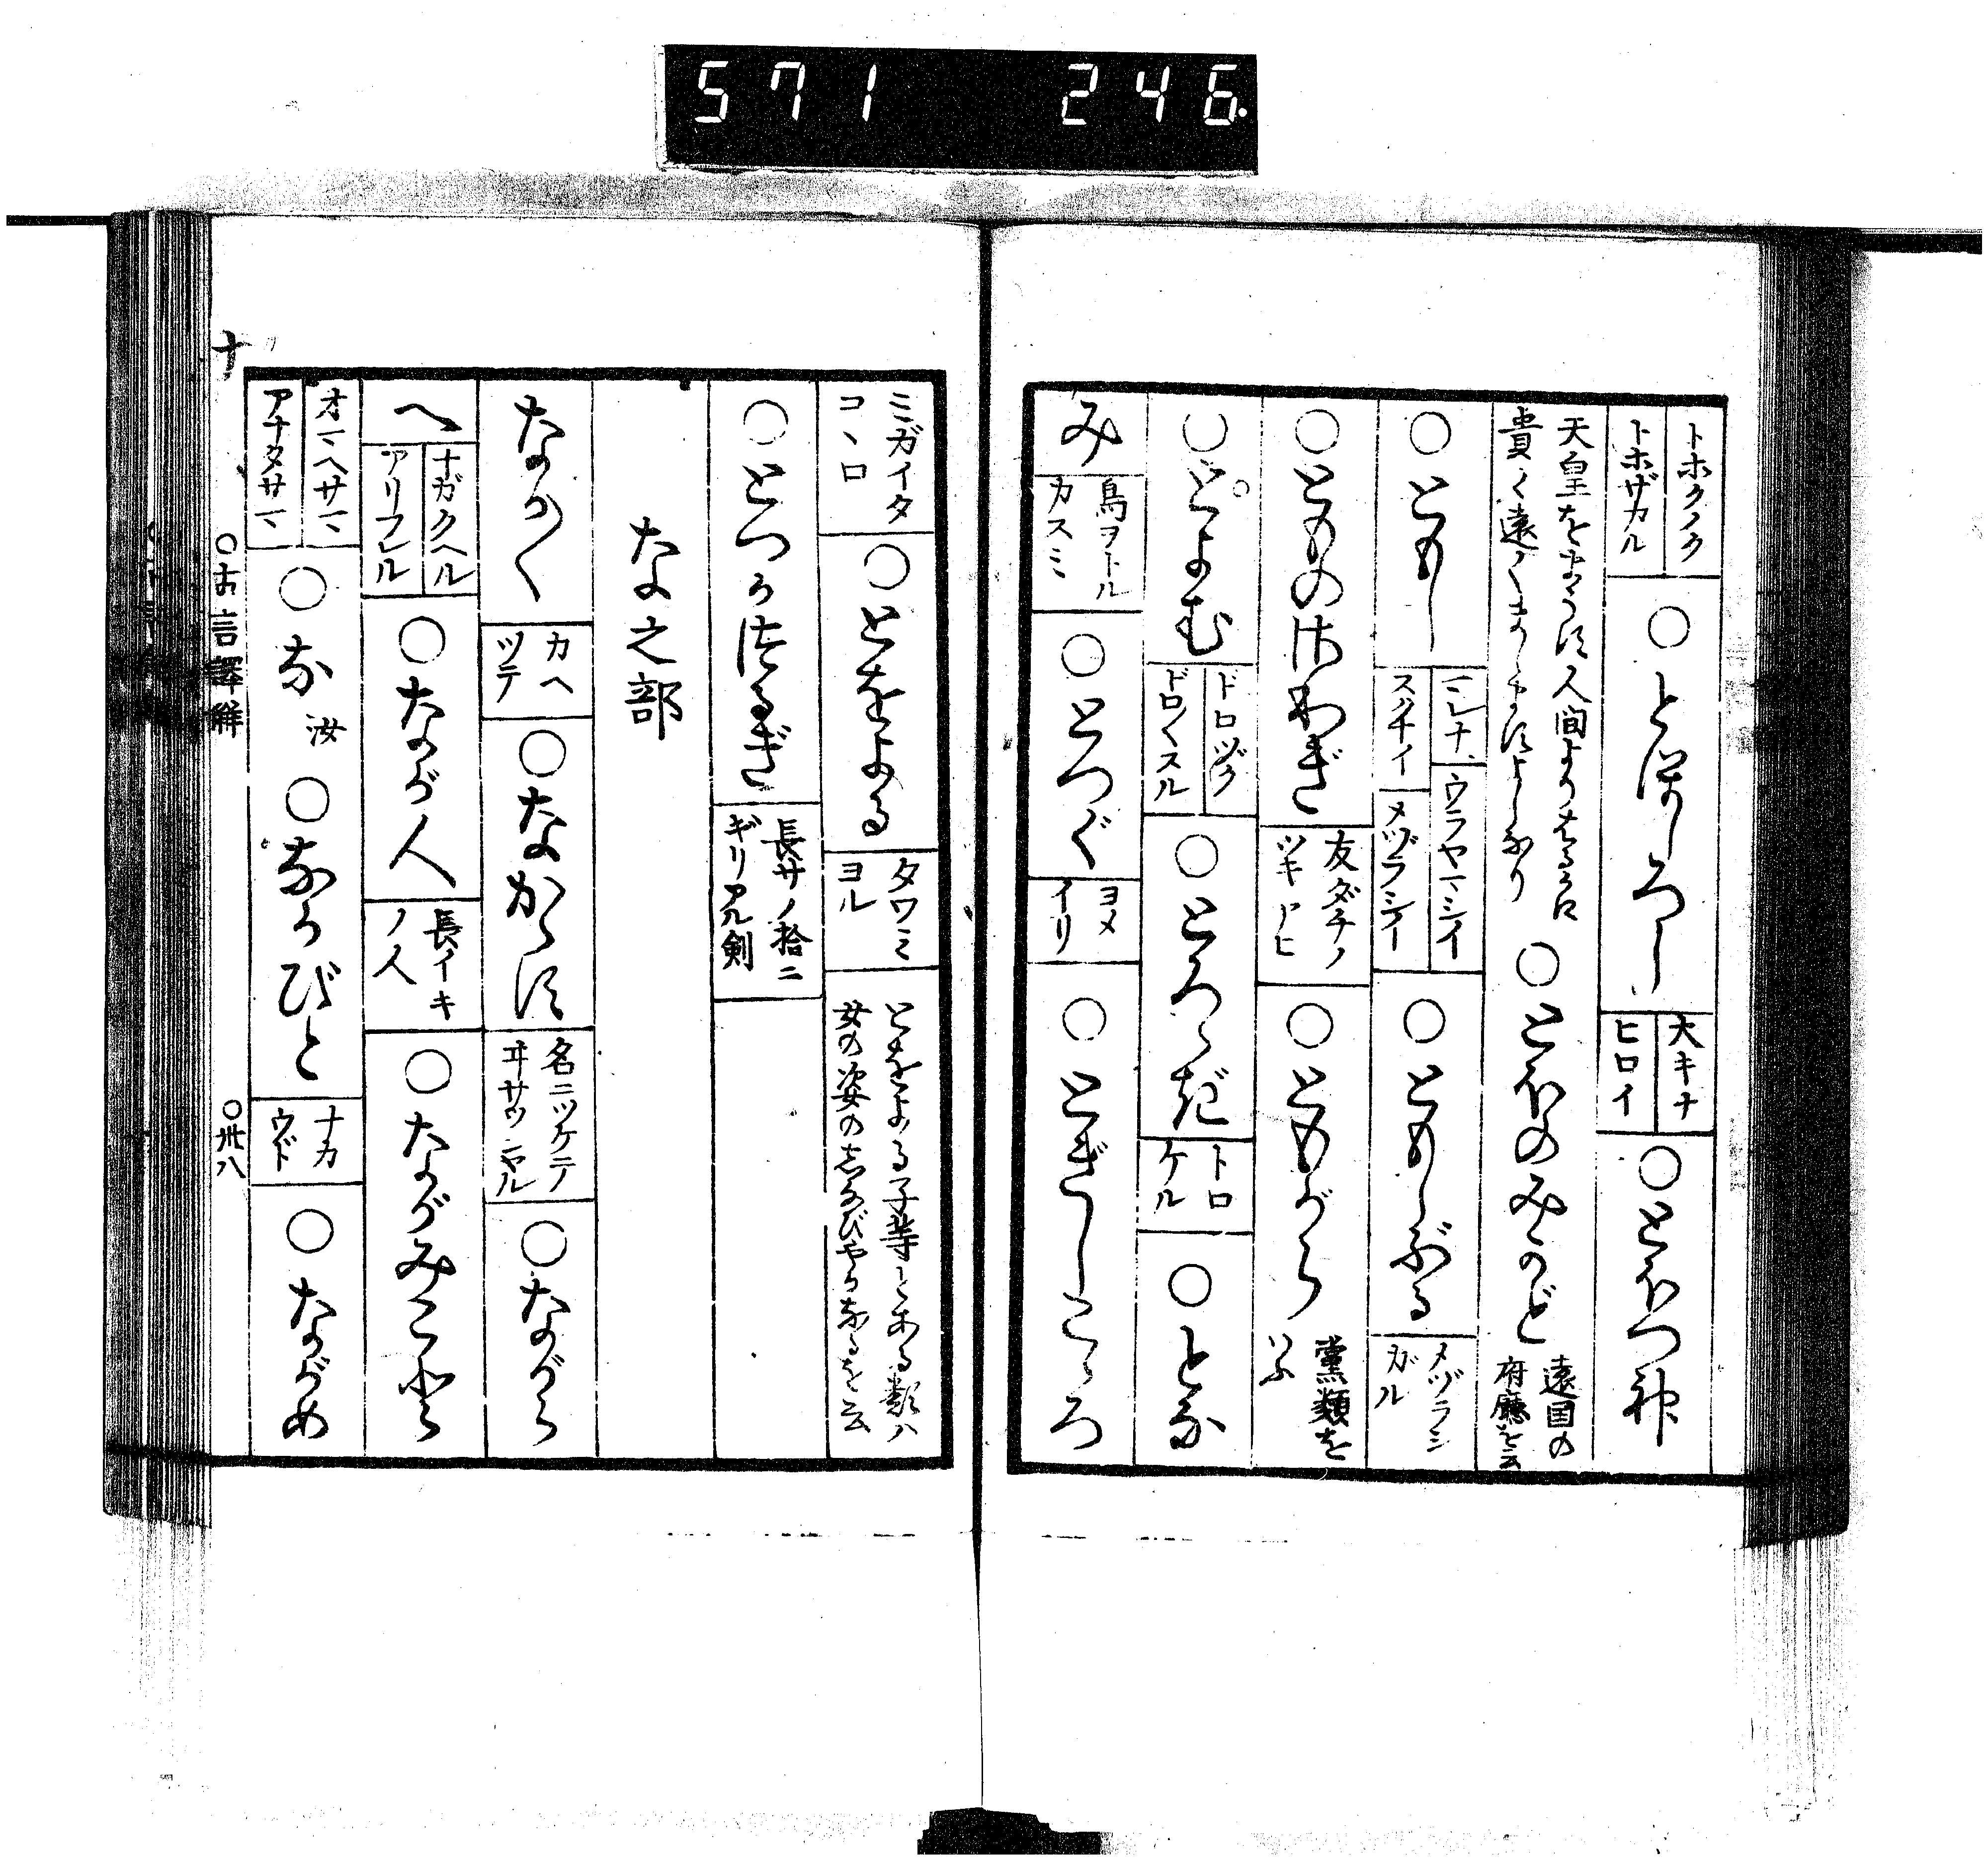 571 246
トホクノク
トホザカル
○とほしろし
大キナ
ヒロイ
○とほつ神
天皇をまうす人間よりはるかに
貴く遠くましますよしなり
○とほのみかど
遠国の
府廳を云
○ともし
ミレナ
スクナイ
ウラヤマシイ
メヅラシイ
○ともしぶる
メヅラシ
ガル
○とものさわぎ
友ダチノ
ツキヤヒ
○ともがら
黨類を
いふ
○とよむ
ドロヅク
ドロ〱スル
○とろゝだ
トロ
ケル
○とな
み
鳥ヲトル
カスミ
○とつぐ
ヨメ
イリ
○とぎしこゝろ
ミガイタ
コヽロ
○とをよる
タワミ
ヨル
とをよる子等とある類ハ
女の姿のしなびやかなるを云
○とつかつるぎ
長サノ拾ニ
ギリアル剣
な之部
なか〱
カヘ
ツテ
○なかゝす
名ニツケテ
○ながら
へ
ナガクヘル
アリフレル
○なが人
長イキ
ノ人
○ながみこふら
オマヘサマ
アナタサマ
○な 汝
○なかびと
ナカ
ウド
○ながめ
ナ
○古言譯解
○卅八